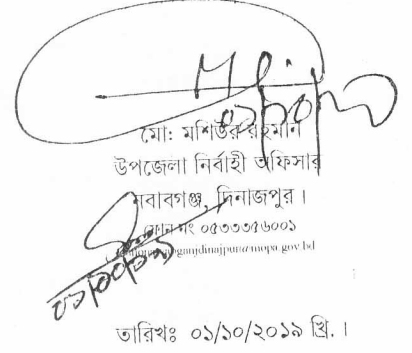 মো: মশিউর রহমান
উপজেলা নির্বাহী অফিসার
নবাবগঞ্জ, দিনাজপুর।
ফোন নং ০৫৩৩৩৫৬০০১
তারিখঃ ০১/১০/২০১৯ খ্রি. ।